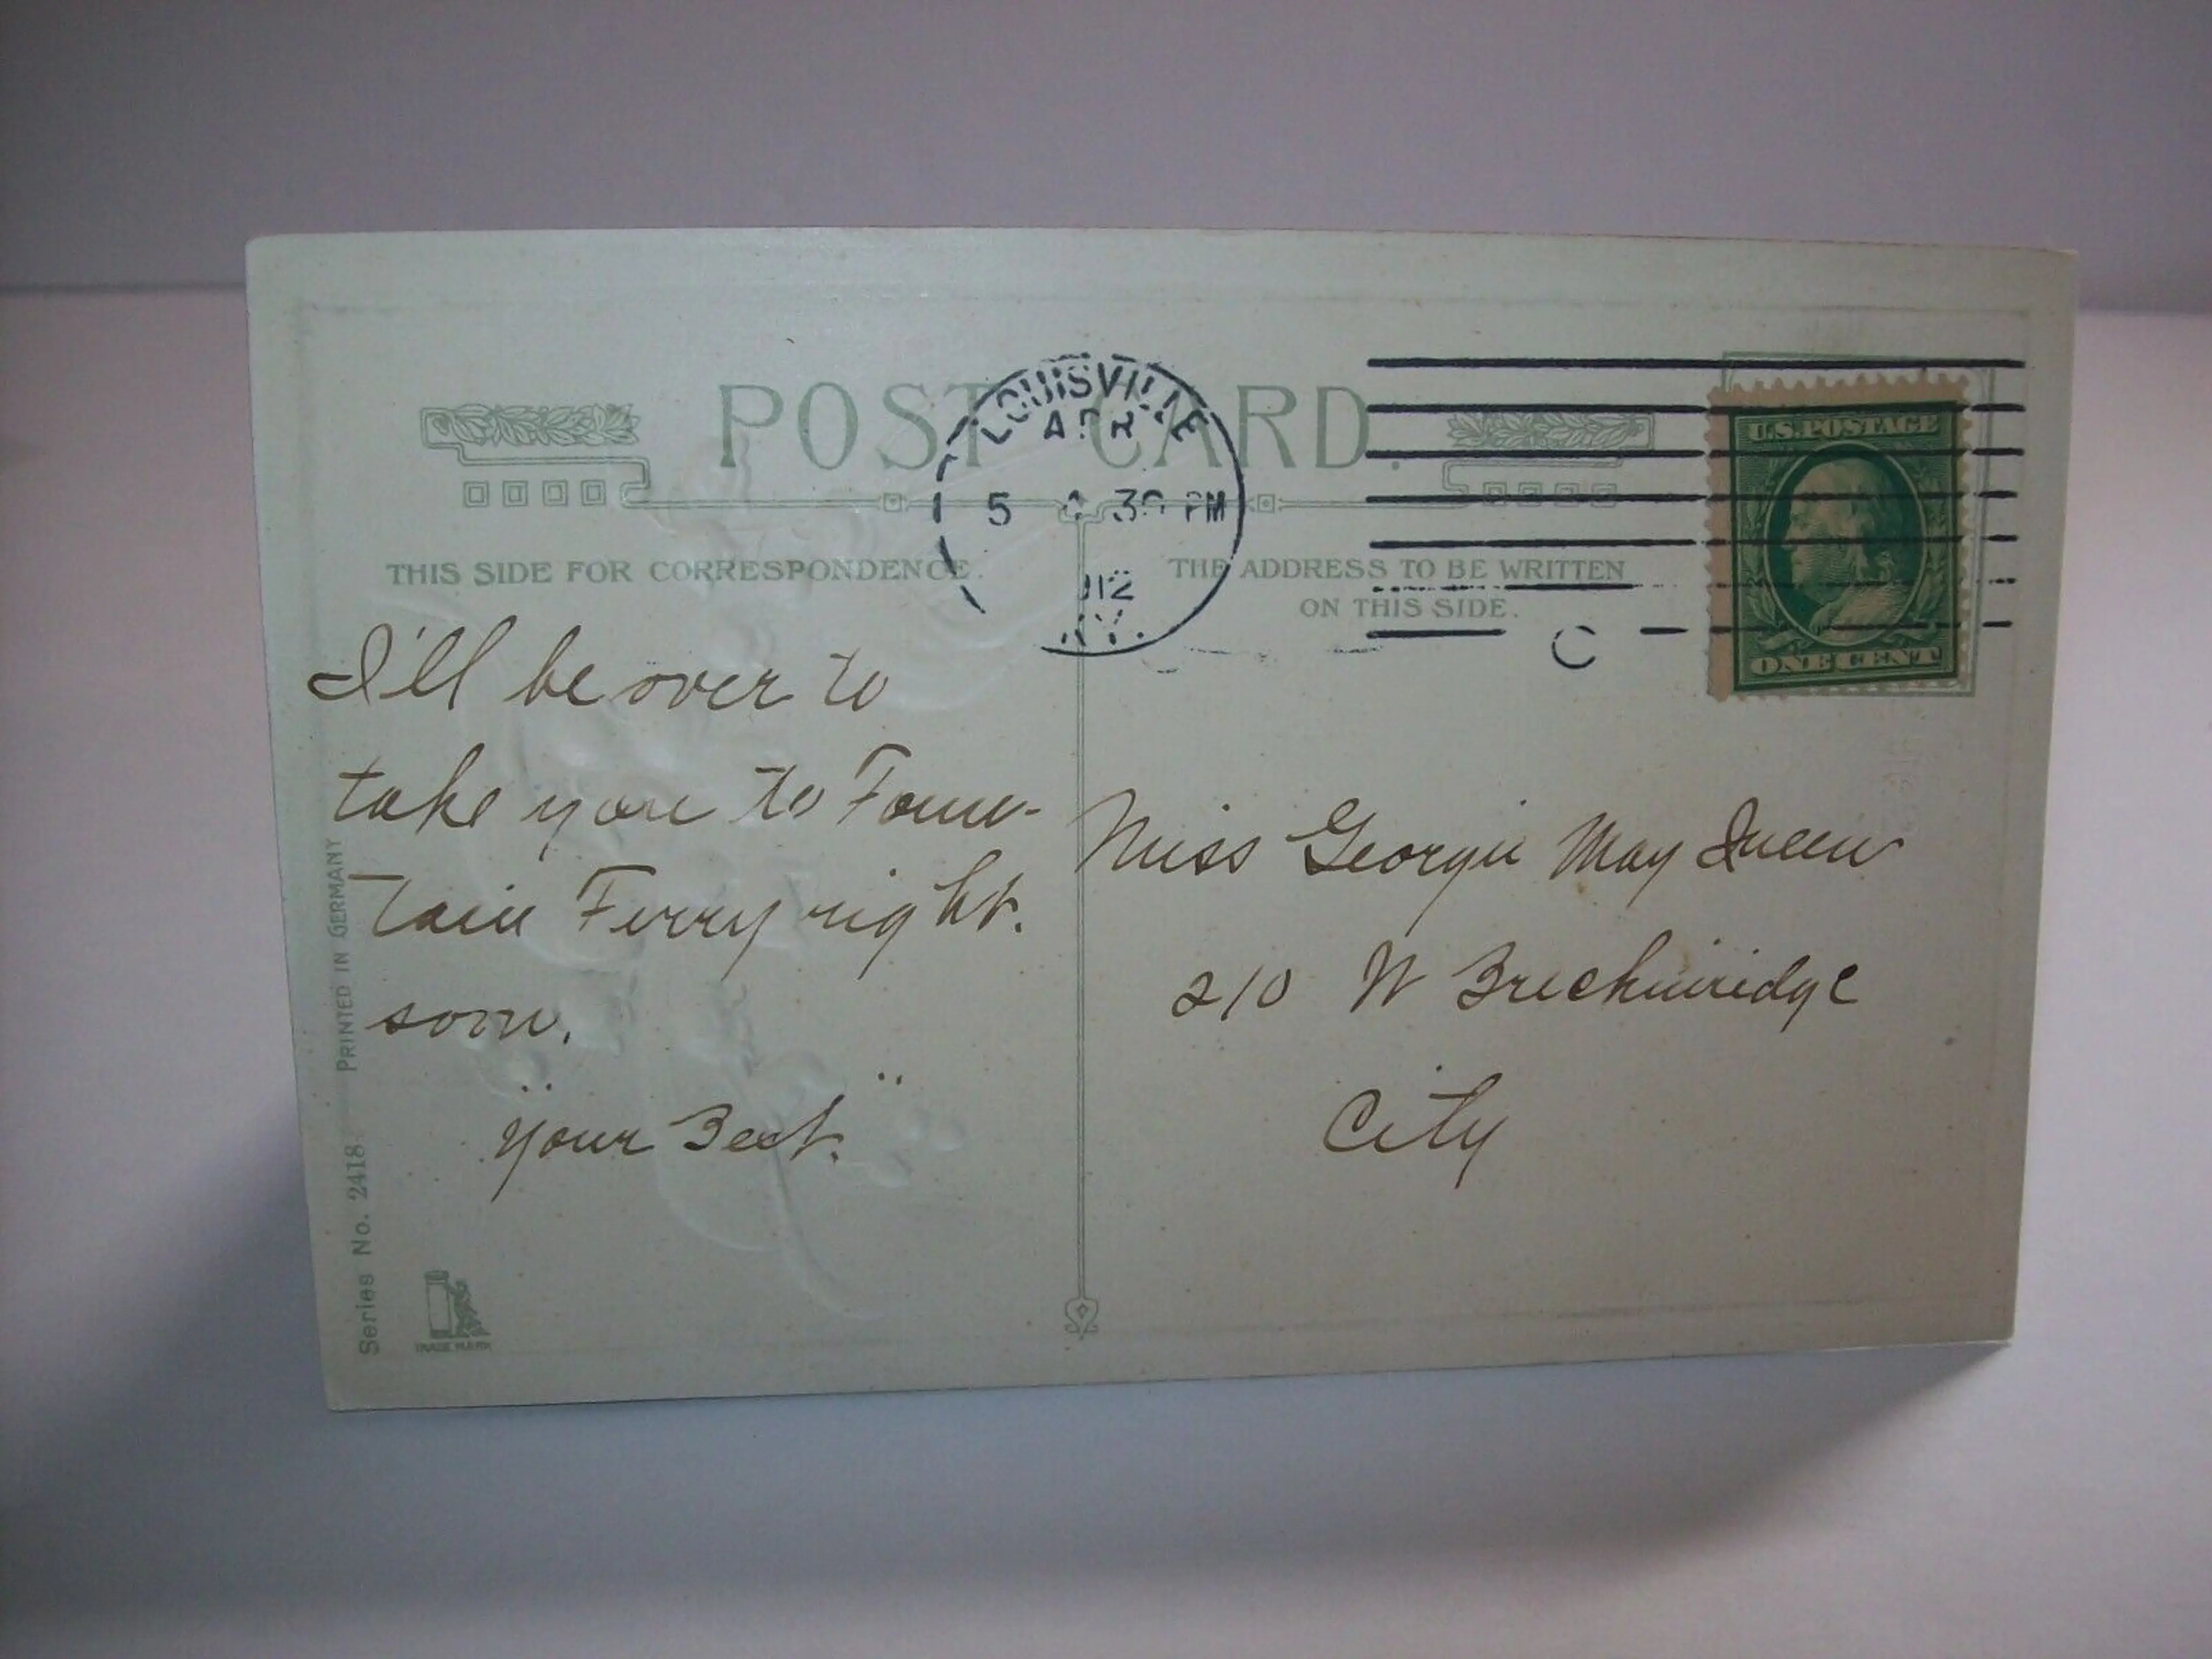 POST CARD.
LOUISVILLE
APR
5 30 PM
1912
KY.
U.S. POSTAGE
ONE CENT
THIS SIDE FOR CORRESPONDENCE.
THE ADDRESS TO BE WRITTEN
ON THIS SIDE.
C
I'll be over to
take you to Foun-
tain Ferry right.
soon.
"Your Best."
Miss Georgie May Queen
210 W Breckinridge
City
Series No. 2418. PRINTED IN GERMANY
TRADE MARK